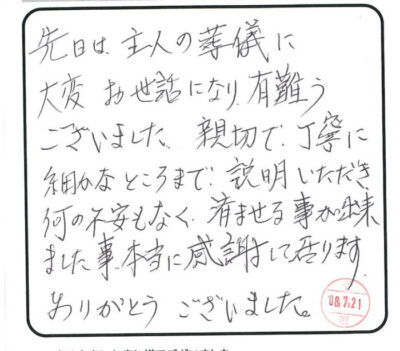 先日は、主人の葬儀に
大変 お世話になり、有難う
ございました。親切で、丁寧に
細かなところまで、説明いただき
何の不安もなく、済ませる事が出来
ました事、本当に感謝して居ります。
ありがとう ございました。
08.7.21